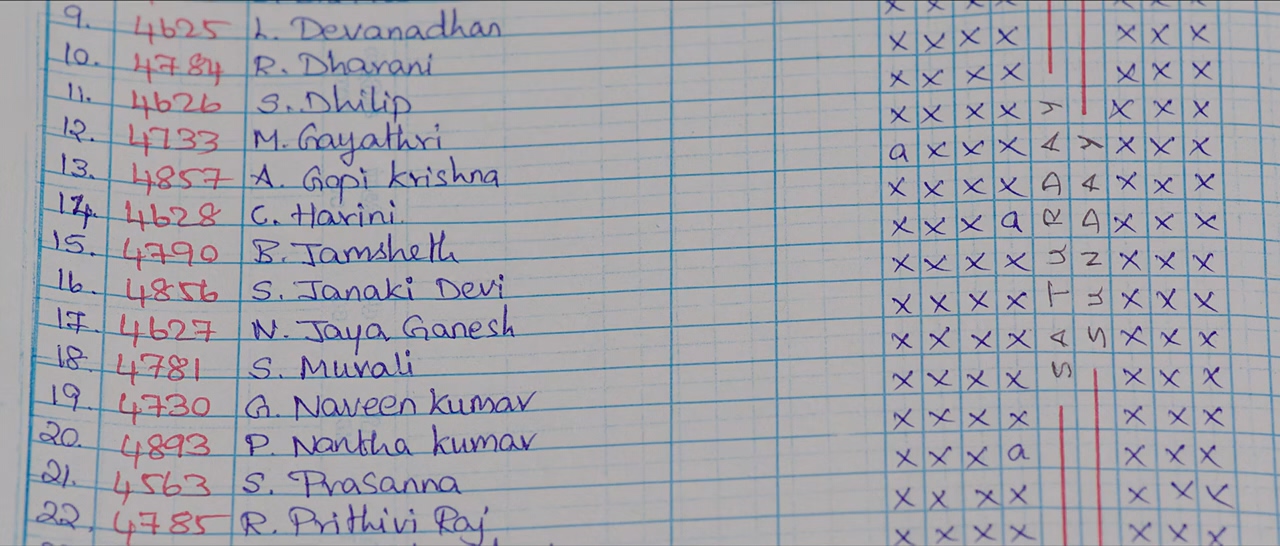 9. 4625 L. Devanadhan x x x x x x x
10. 4784 R. Dharani x x x x x x x
11. 4626 S. Dhilip x x x x x x x
12. 4733 M. Gayathri a x x x x x x
13. 4857 A. Gopi krishna x x x x x x x
14. 4628 C. Harini. x x x a x x x
15. 4790 B. Jamsheth x x x x x x x
16. 4856 S. Janaki Devi x x x x x x x
17. 4627 N. Jaya Ganesh x x x x x x x
18. 4781 S. Murali x x x x x x x
19. 4730 G. Naveen kumar x x x x x x x
20. 4893 P. Nantha kumar x x x a x x x
21. 4563 S. Prasanna x x x x x x x
22. 4785 R. Prithivi Raj x x x x x x x
SATURDAY
SUNDAY